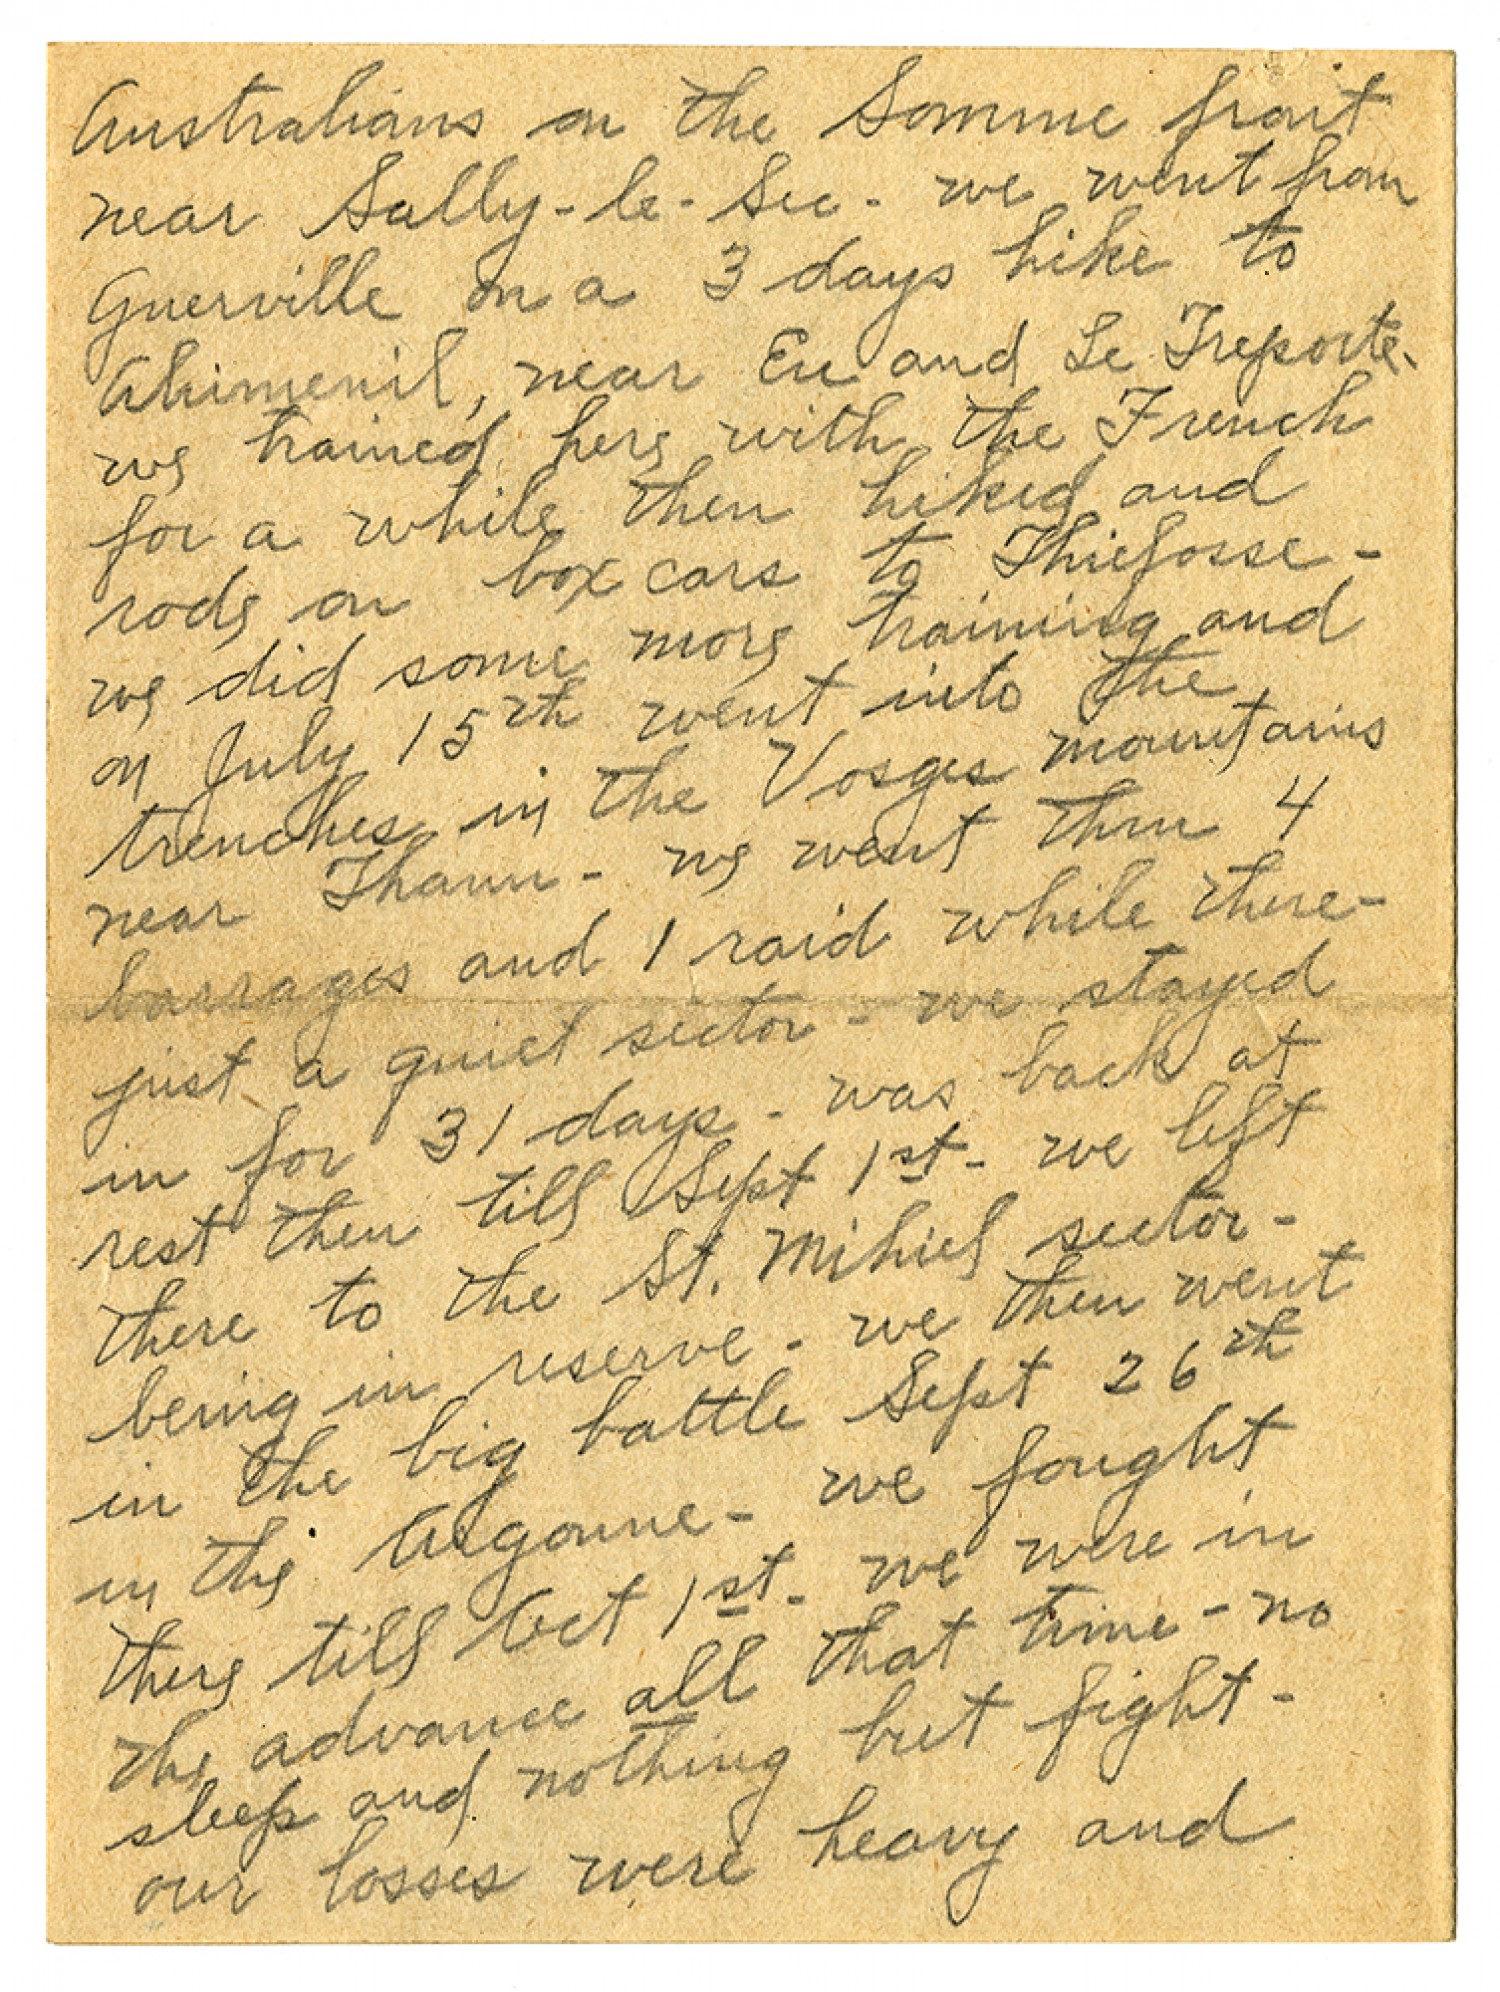 Australians on the Somme front
near Sally-le-Sec - we went from
Guerville on a 3 days hike to
Ahimenil, near Eu and Le Treporte.
we trained here with the French
for a while then hiked and
rode on box cars to Thiefosse -
we did some more training and
on July 15th went into the
trenches in the Vosges mountains
near Thann - we went thru 4
barrages and 1 raid while there -
just a quiet sector - we stayed
in for 31 days - was back at
rest then till Sept 1st - we left
there to the St. Mihiel sector -
being in reserve - we then went
in the big battle Sept 26th
in the Argonne - we fought
there till Oct 1st - we were in
the advance all that time - no
sleep and nothing but fight -
our losses were heavy and